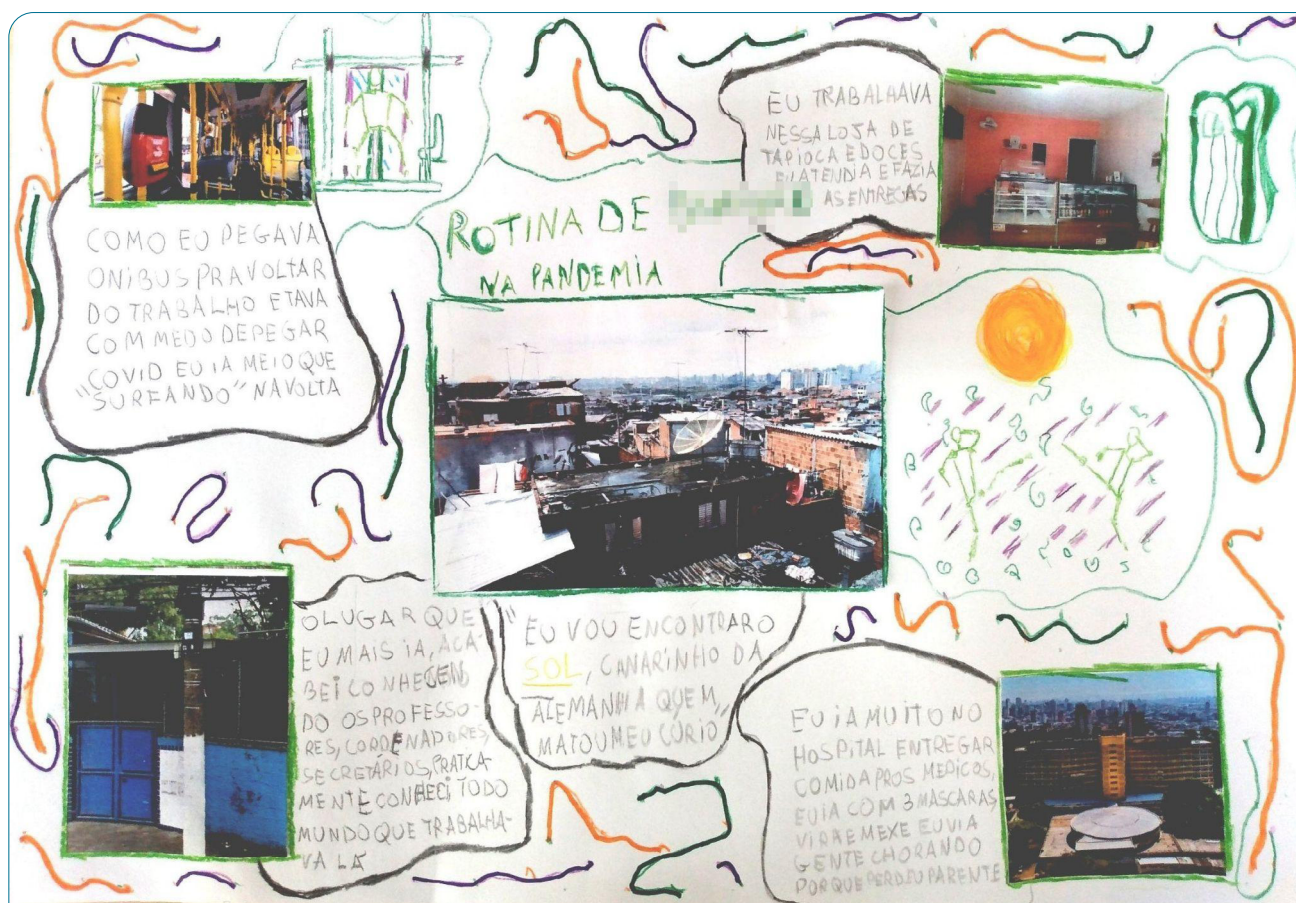 ROTINA DE
NA PANDEMIA
COMO EU PEGAVA
ONIBUS PRA VOLTAR
DO TRABALHO E TAVA
COM MEDO DE PEGAR
COVID EU IA MEIO QUE
"SURFANDO" NA VOLTA
EU TRABALHAVA
NESSA LOJA DE
TAPIOCA E DOCES
EU ATENDIA E FAZIA
AS ENTREGAS
O LUGAR QUE
EU MAIS IA, ACA-
BEI CONHECEN
DO OS PROFESSO-
RES, CORDENADORES,
SECRETÁRIOS, PRATICA-
MENTE CONHECI TODO
MUNDO QUE TRABALHA-
VA LÁ
"EU VOU ENCONTRAR O
SOL, CANARINHO DA
ALEMANHA QUEM
MATOU MEU CÚRIO"
EU IA MUITO NO
HOSPITAL ENTREGAR
COMIDA PROS MEDICOS,
EU IA COM 3 MÁSCARAS,
VIRA E MEXE EU VIA
GENTE CHORANDO
PORQUE PERDEU PARENTE